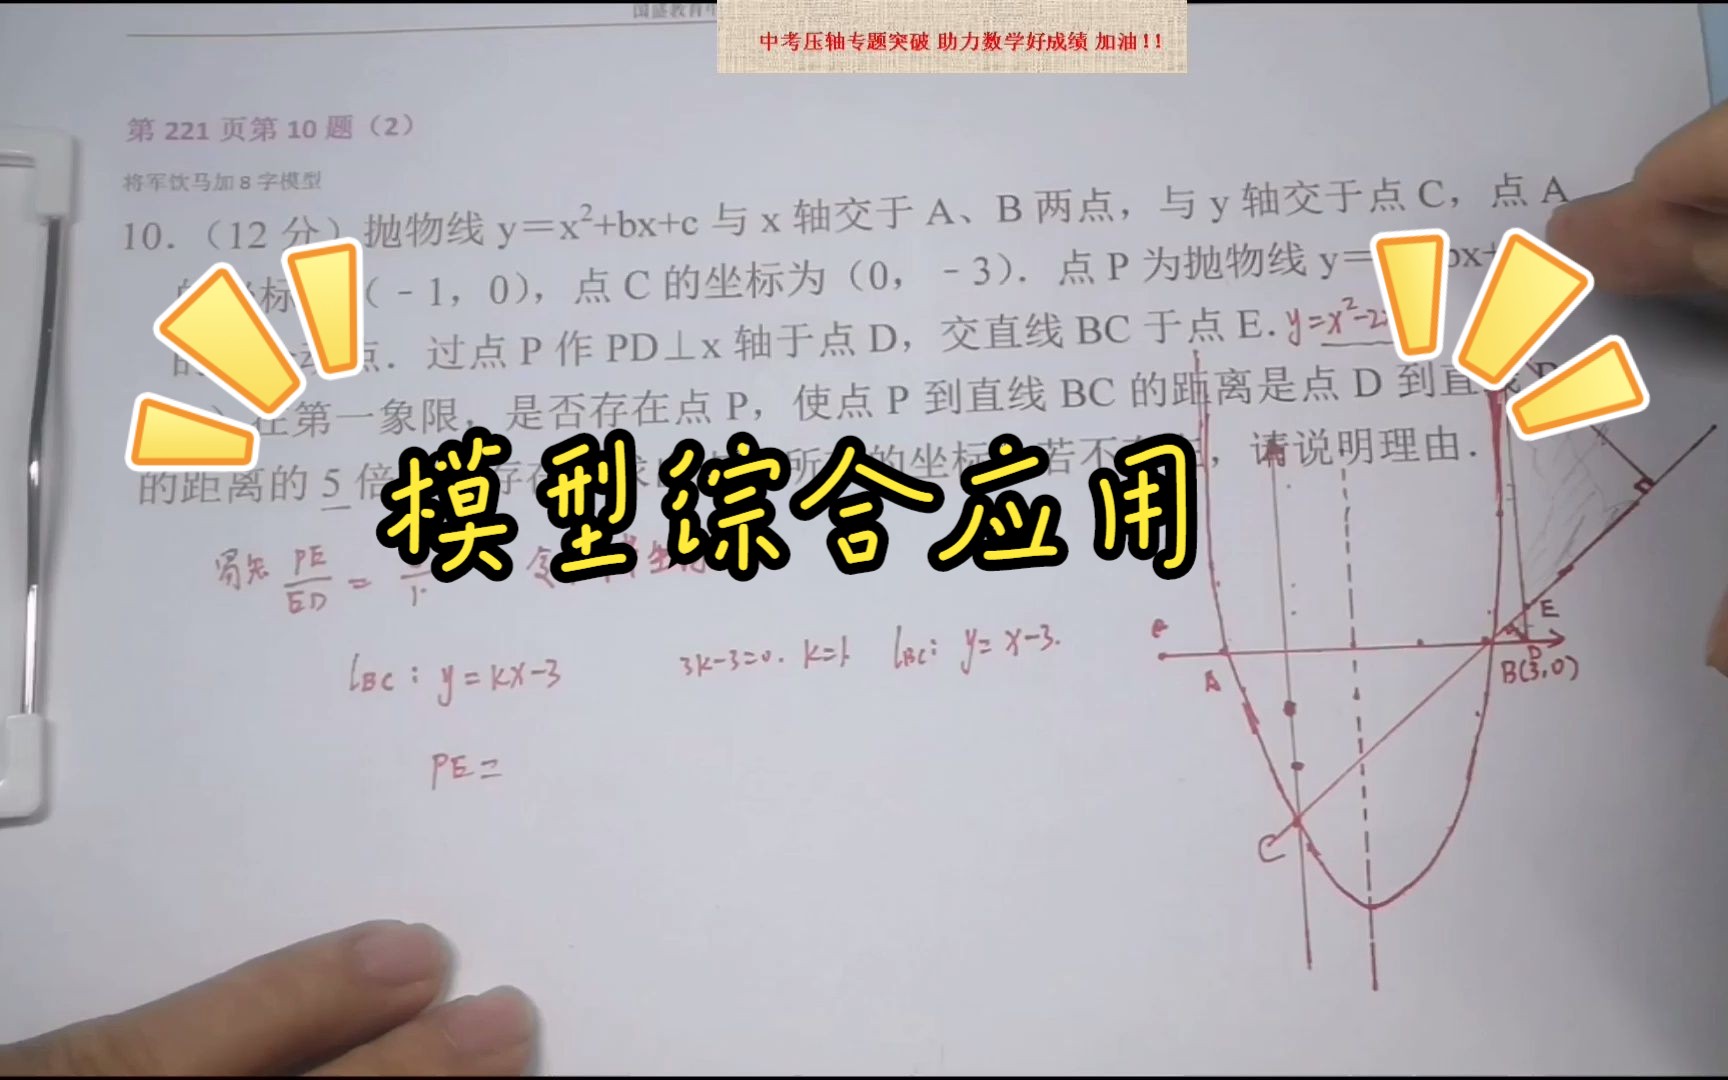 中考压轴专题突破 助力数学好成绩 加油!!
第 221 页第 10 题（2）
将军饮马加 8 字模型
10.（12 分）抛物线 y＝x²+bx+c 与 x 轴交于 A、B 两点，与 y 轴交于点 C，点 A
（﹣1，0），点 C 的坐标为（0，﹣3）．点 P 为抛物线 y＝
点．过点 P 作 PD⊥x 轴于点 D，交直线 BC 于点 E. y=x²-2
在第一象限，是否存在点 P，使点 P 到直线 BC 的距离是点 D 到直线
的距离的 5 倍 所 的坐标 若不 ，请说明理由．
模型综合应用
易知 PE/ED =
lBC: y=kx-3 3k-3=0. k=1. lBC: y=x-3.
PE=
E
A
D
B(3,0)
C